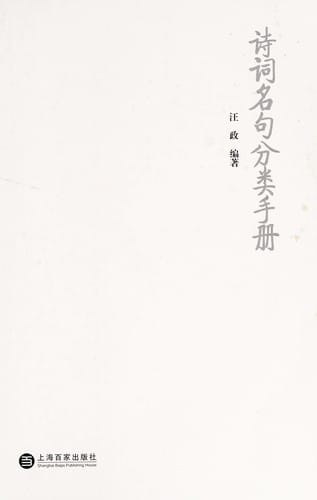 诗词名句分类手册
汪政 编著
上海百家出版社
Shanghai Baijia Publishing House